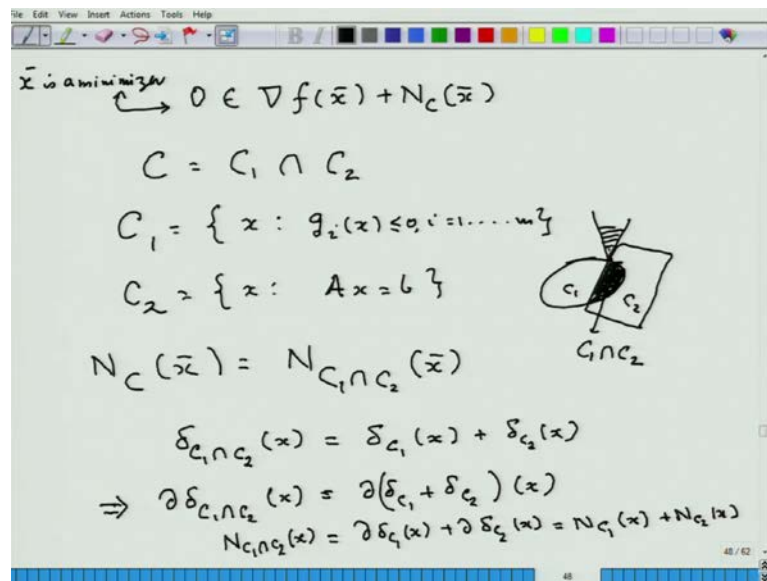 File Edit View Insert Actions Tools Help
B I
x̄ is a minimizer
0 ∈ ∇f(x̄) + N_C(x̄)
C = C₁ ∩ C₂
C₁ = { x : gᵢ(x) ≤ 0, i = 1.....m }
C₂ = { x : Ax = b }
C₁ C₂
C₁∩C₂
N_C(x̄) = N_{C₁∩C₂}(x̄)
δ_{C₁∩C₂}(x) = δ_{C₁}(x) + δ_{C₂}(x)
⇒ ∂δ_{C₁∩C₂}(x) = ∂(δ_{C₁} + δ_{C₂})(x)
N_{C₁∩C₂}(x) = ∂δ_{C₁}(x) + ∂δ_{C₂}(x) = N_{C₁}(x) + N_{C₂}(x)
48 / 62
48